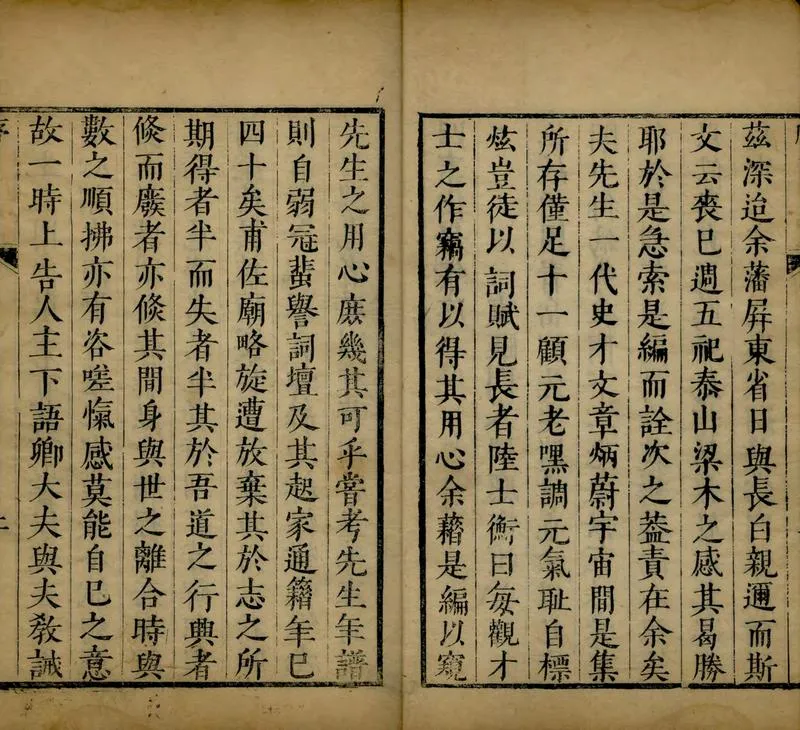 茲深迨余藩屏東省日與長白親邇而斯
文云喪已週五祀泰山梁木之感其曷勝
耶於是急索是編而詮次之葢責在余矣
夫先生一代史才文章炳蔚宇宙間是集
所存僅足十一顧元老嘿調元氣耻自標
炫豈徒以詞賦見長者陸士衡曰每觀才
士之作竊有以得其用心余藉是編以窺
先生之用心庶幾其可乎嘗考先生年譜
則自弱冠蜚譽詞壇及其起家通籍年已
四十矣甫佐廟略旋遭放棄其於志之所
期得者半而失者半其於吾道之行興者
倐而廢者亦倐其間身與世之離合時與
數之順拂亦有咨嗟愾感莫能自已之意
故一時上告人主下語卿大夫與夫敎誡